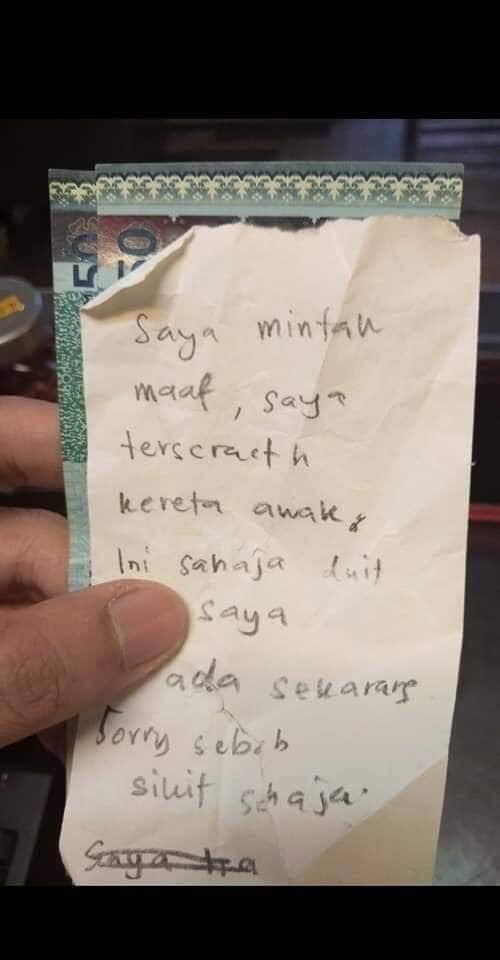 50
50
Saya mintak
maaf, saya
terscracth
kereta awak,
Ini sahaja duit
saya
ada sekarang
Sorry sebab
sikit sahaja.
Saya